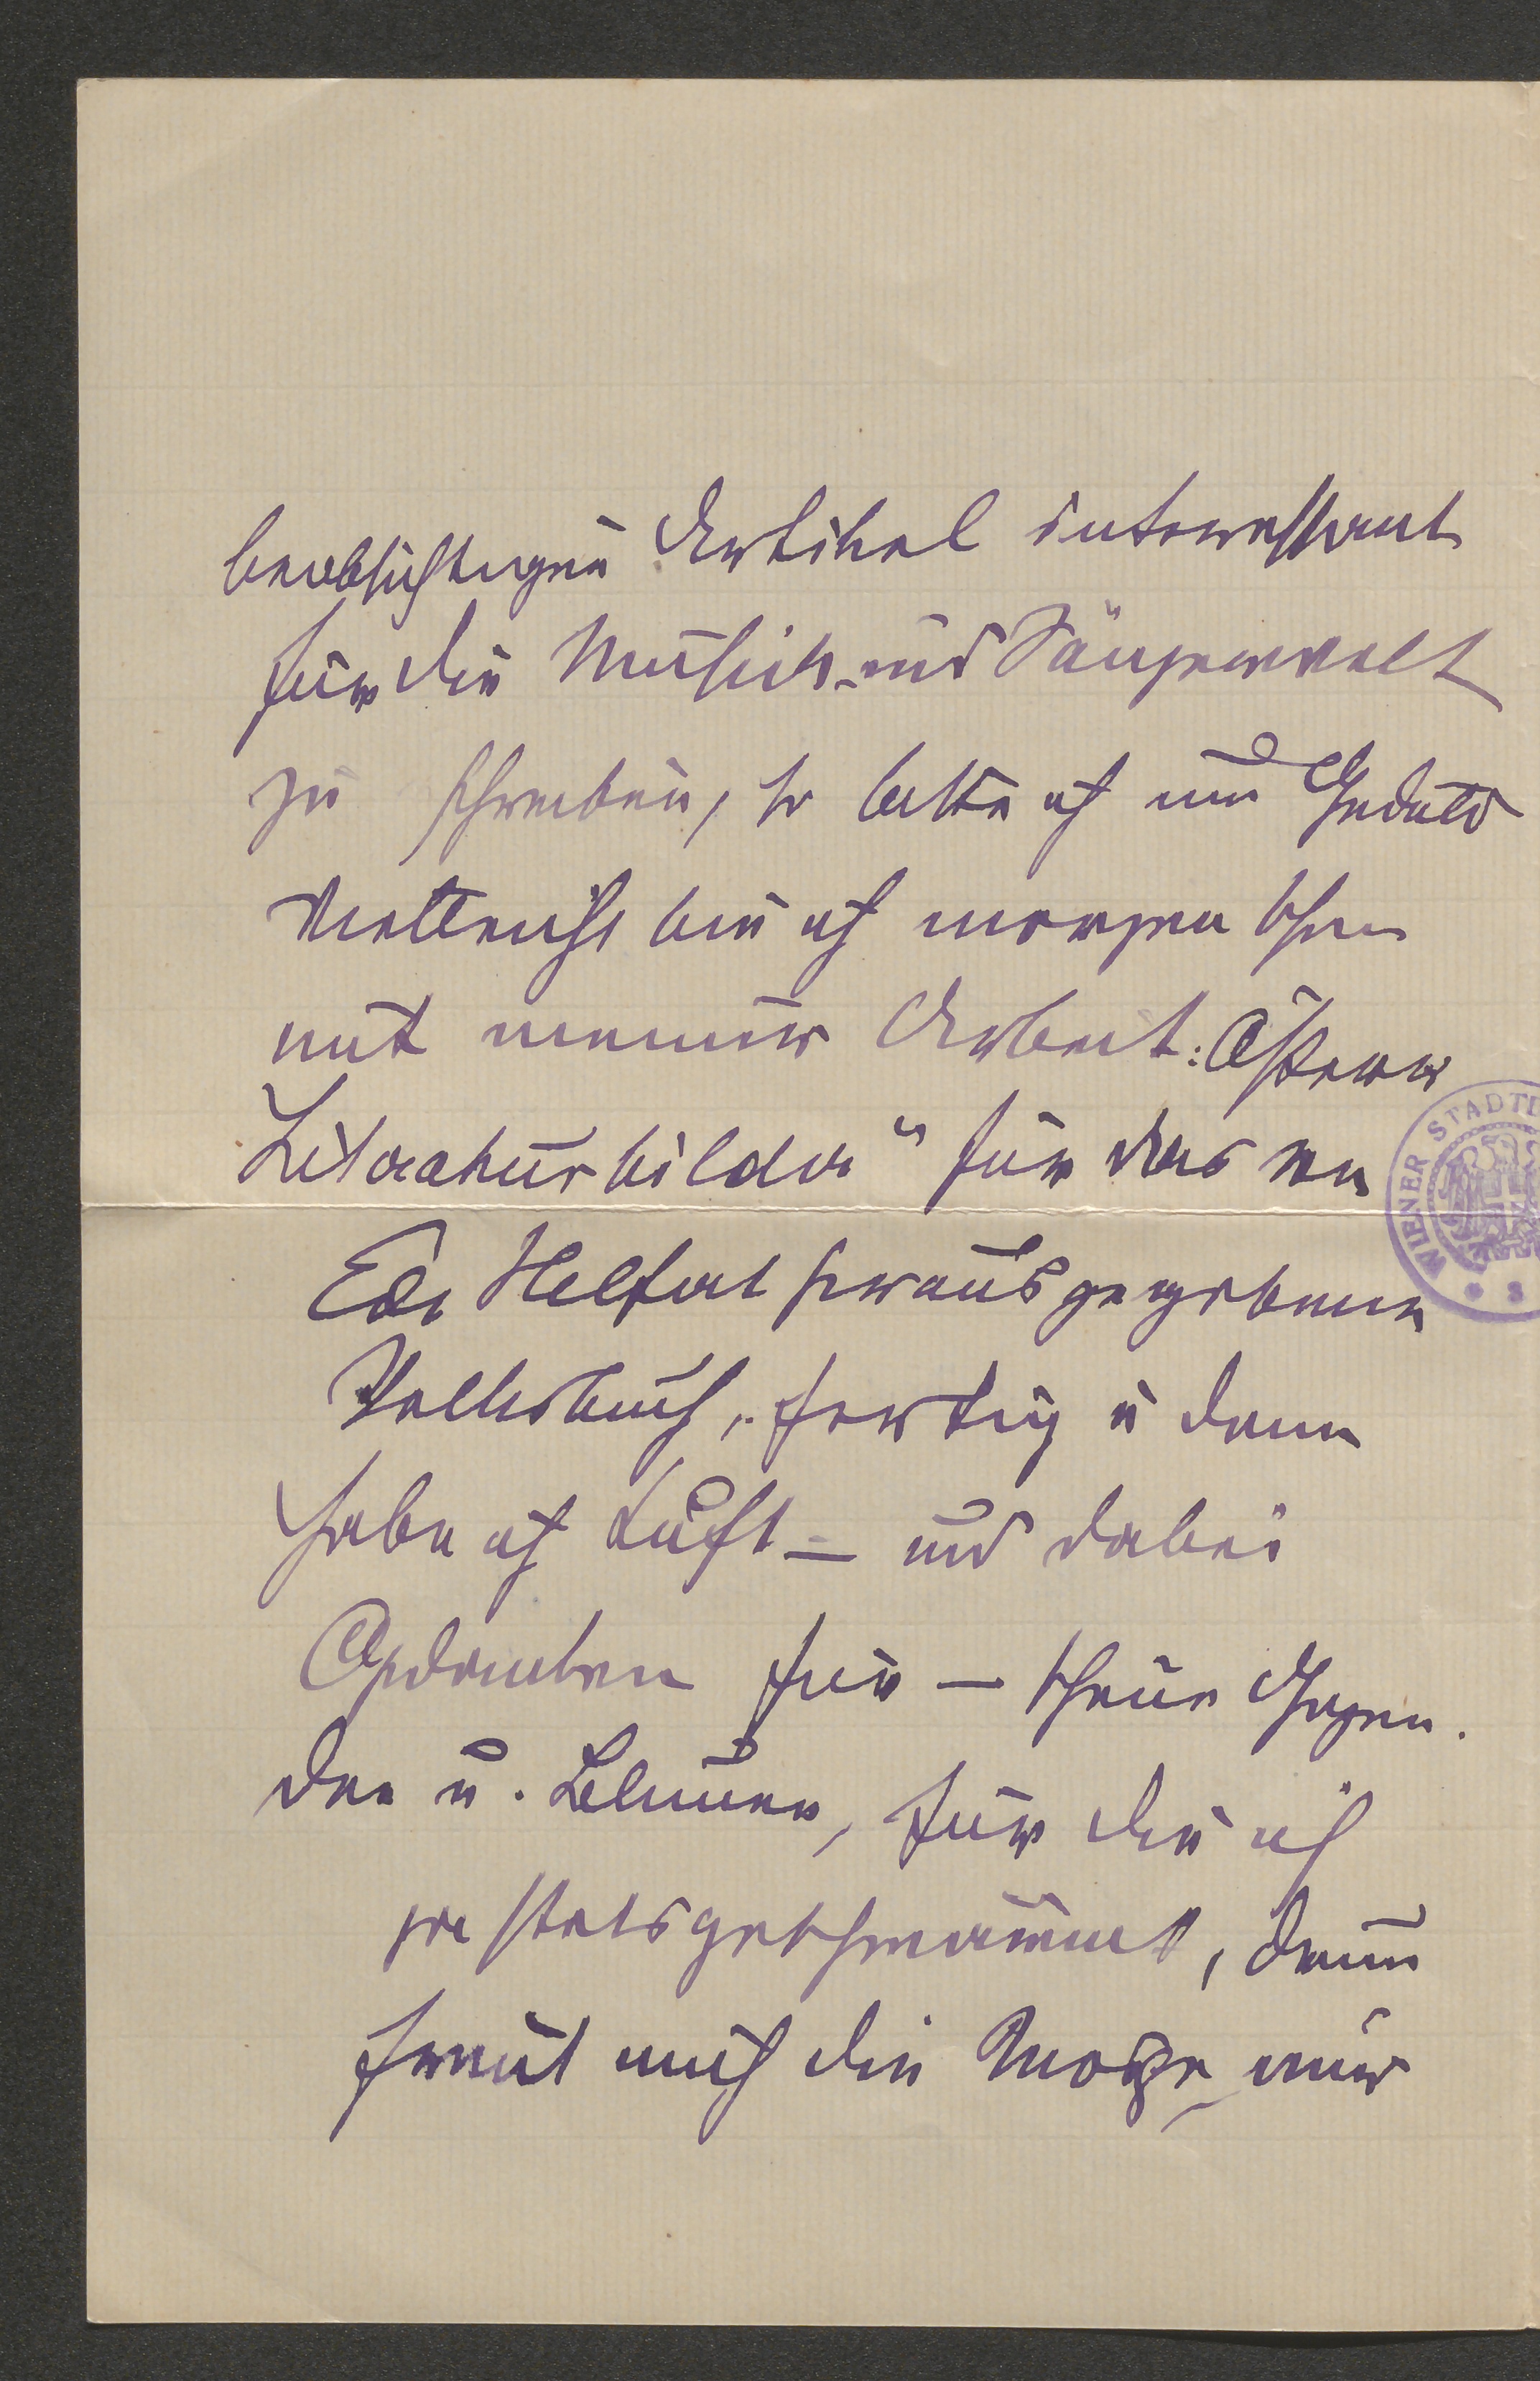 beabsichtigen Artikel interessant
für die Musik- und Sängerwelt
zu schreiben, so bitte ich um Geduld
Vielleicht bin ich morgen schon
mit meiner Arbeit: Österr
Literaturbilder" für das von
Exc Helfert herausgegebene
Volksbuch, fertig u dann
habe ich Luft – und dabei
Gedanken für – schöne
u. für die ich
ja stets geschwärmt, dann
freut mich die nur
WIENER STADT